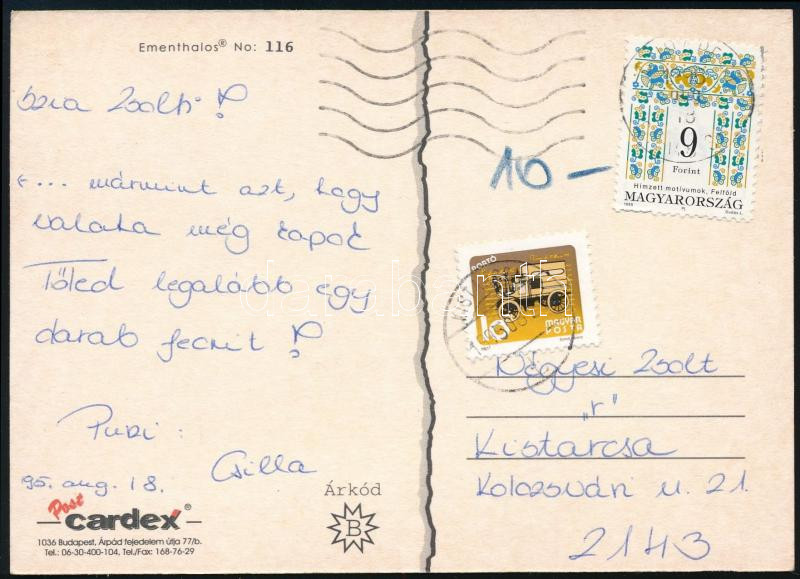 Ementhalos® No: 116
Szia Zsolti !
(... mármint azt, hogy
valaha még kapok
Tőled legalább egy
darab fecnit !
Puszi:
Csilla
95. aug. 18.
Post
cardex®
1036 Budapest, Árpád fejedelem útja 77/b.
Tel.: 06-30-400-104, Tel./Fax: 168-76-29
Árkód
B
10 –
9
Forint
Hímzett motívumok, Felföld
MAGYARORSZÁG
PORTÓ
MAGYAR
POSTA
KIST
Négyesi Zsolt
"r"
Kistarcsa
Kolozsvári u. 21.
2143